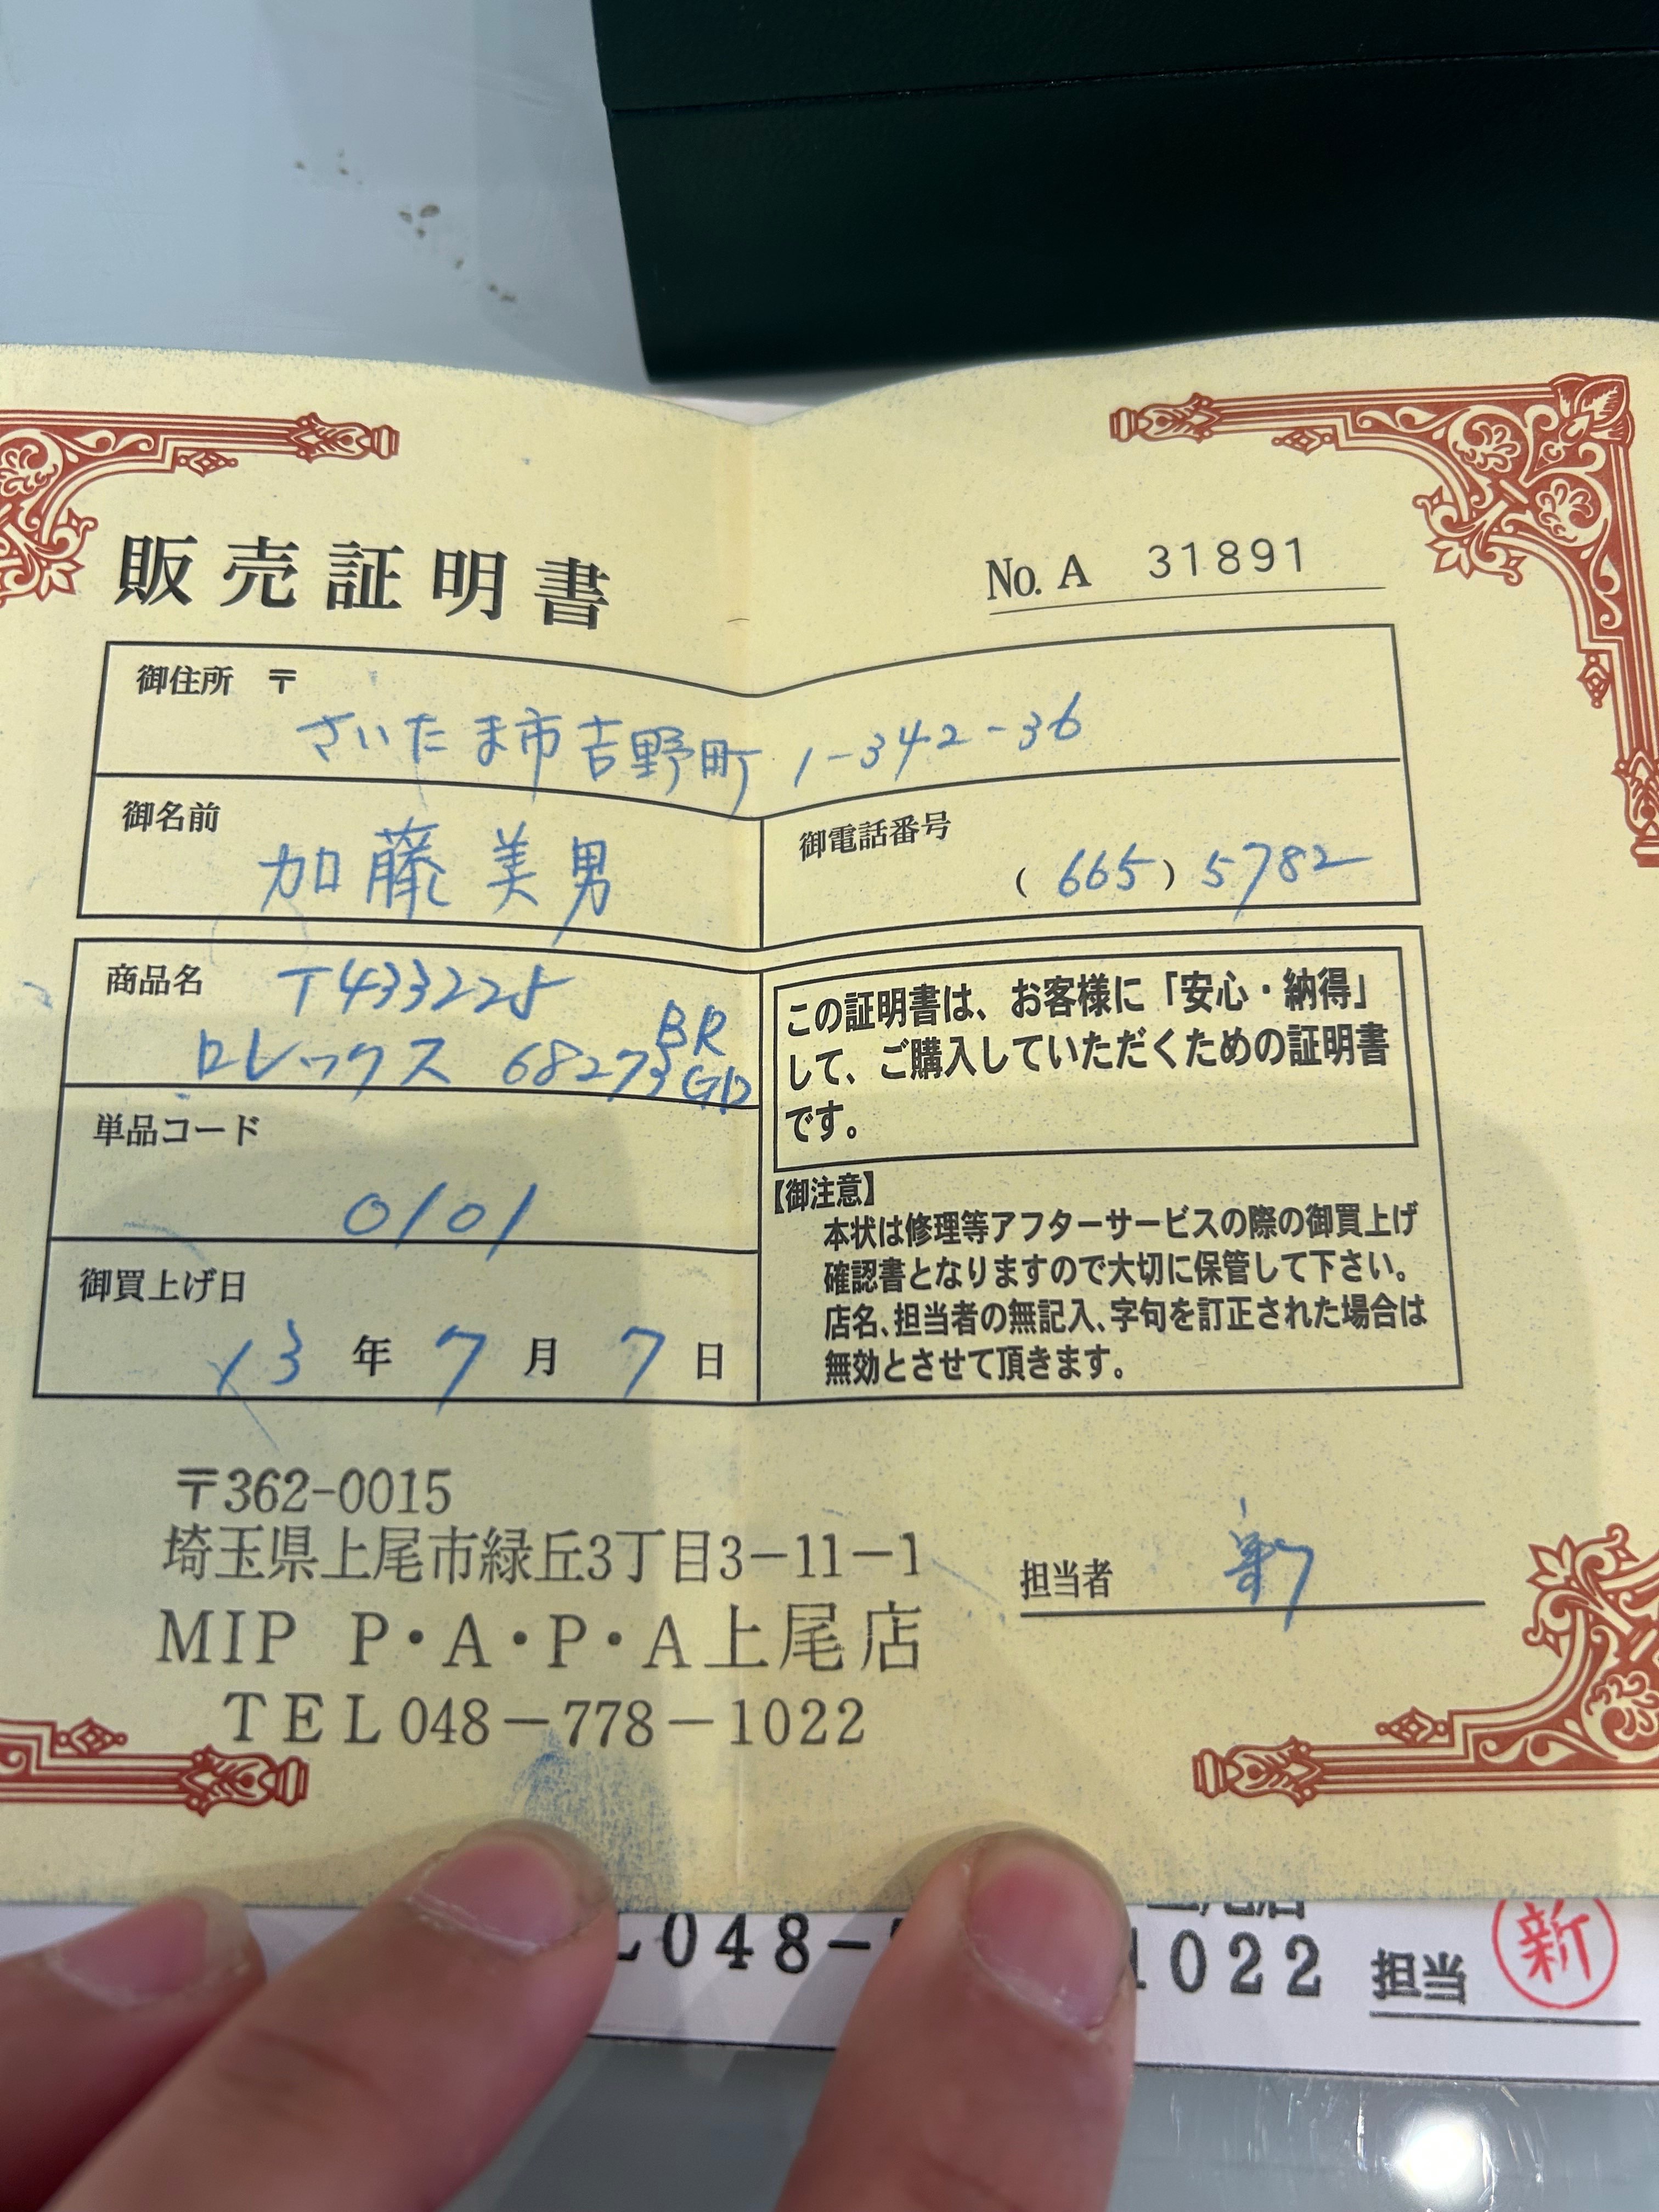 販売証明書
No. A 31891
御住所 〒
さいたま市吉野町 1-342-36
御名前
加藤 美男
御電話番号
(665) 5782
商品名 T433225
ロレックス 68273 BR GD
単品コード
0101
御買上げ日
13年7月7日
この証明書は、お客様に「安心・納得」
して、ご購入していただくための証明書
です。
【御注意】
本状は修理等アフターサービスの際の御買上げ
確認書となりますので大切に保管して下さい。
店名、担当者の無記入、字句を訂正された場合は
無効とさせて頂きます。
〒362-0015
埼玉県上尾市緑丘3丁目3-11-1
MIP P・A・P・A上尾店
TEL048-778-1022
担当者 新
L048-
1022 担当 新